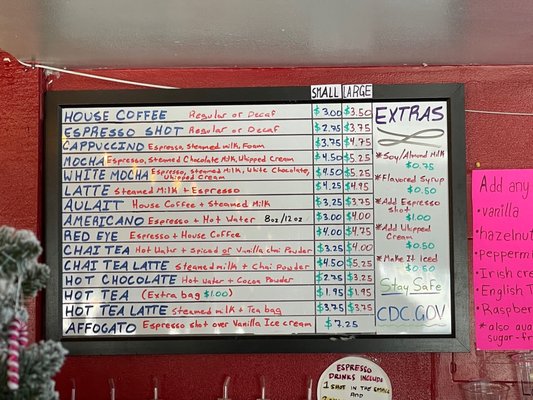 SMALL LARGE
HOUSE COFFEE Regular or Decaf $3.00 $3.50
ESPRESSO SHOT Regular or Decaf $2.75 $3.75
CAPPUCCINO Espresso, Steamed milk, Foam $3.75 $4.75
MOCHA Espresso, Steamed Chocolate Milk, Whipped Cream $4.50 $5.25
WHITE MOCHA Espresso, Steamed milk, White Chocolate, Whipped Cream $4.50 $5.25
LATTE Steamed Milk + Espresso $4.25 $4.95
AULAIT House Coffee + Steamed Milk $3.25 $3.75
AMERICANO Espresso + Hot Water 8oz/12oz $3.00 $4.00
RED EYE Espresso + House Coffee $4.00 $4.75
CHAI TEA Hot Water + Spiced or Vanilla chai Powder $3.25 $4.00
CHAI TEA LATTE Steamed milk + Chai Powder $4.50 $5.25
HOT CHOCOLATE Hot Water + Cocoa Powder $2.75 $3.25
HOT TEA (Extra bag $1.00) $1.95 $1.95
HOT TEA LATTE Steamed milk + Tea bag $3.75 $3.75
AFFOGATO Espresso shot over Vanilla Ice cream $7.25
EXTRAS
*Soy/Almond Milk
$0.75
*Flavored Syrup
$0.50
*Add Espresso
shot
$1.00
*Add Whipped
Cream
$0.50
*Make It Iced
$0.50
Stay Safe
CDC.GOV
Add any
• vanilla
• hazelnut
• pepperm
• Irish cre
• English T
• Raspber
*also ava
sugar-fr
ESPRESSO
DRINKS INCLUDE
1 SHOT IN THE SMALL
AND